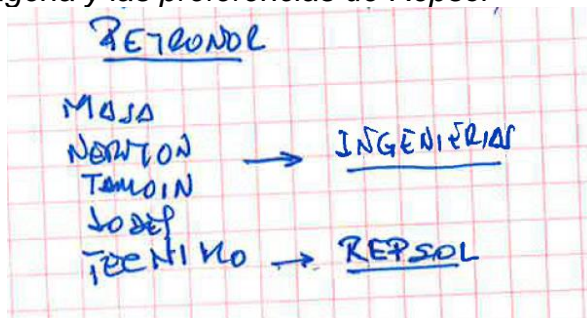 y las preferencias de Repsol
PETRONOR
MASA
NERVION → INGENIERIAS
TAMOIN
TECNIKO → REPSOL